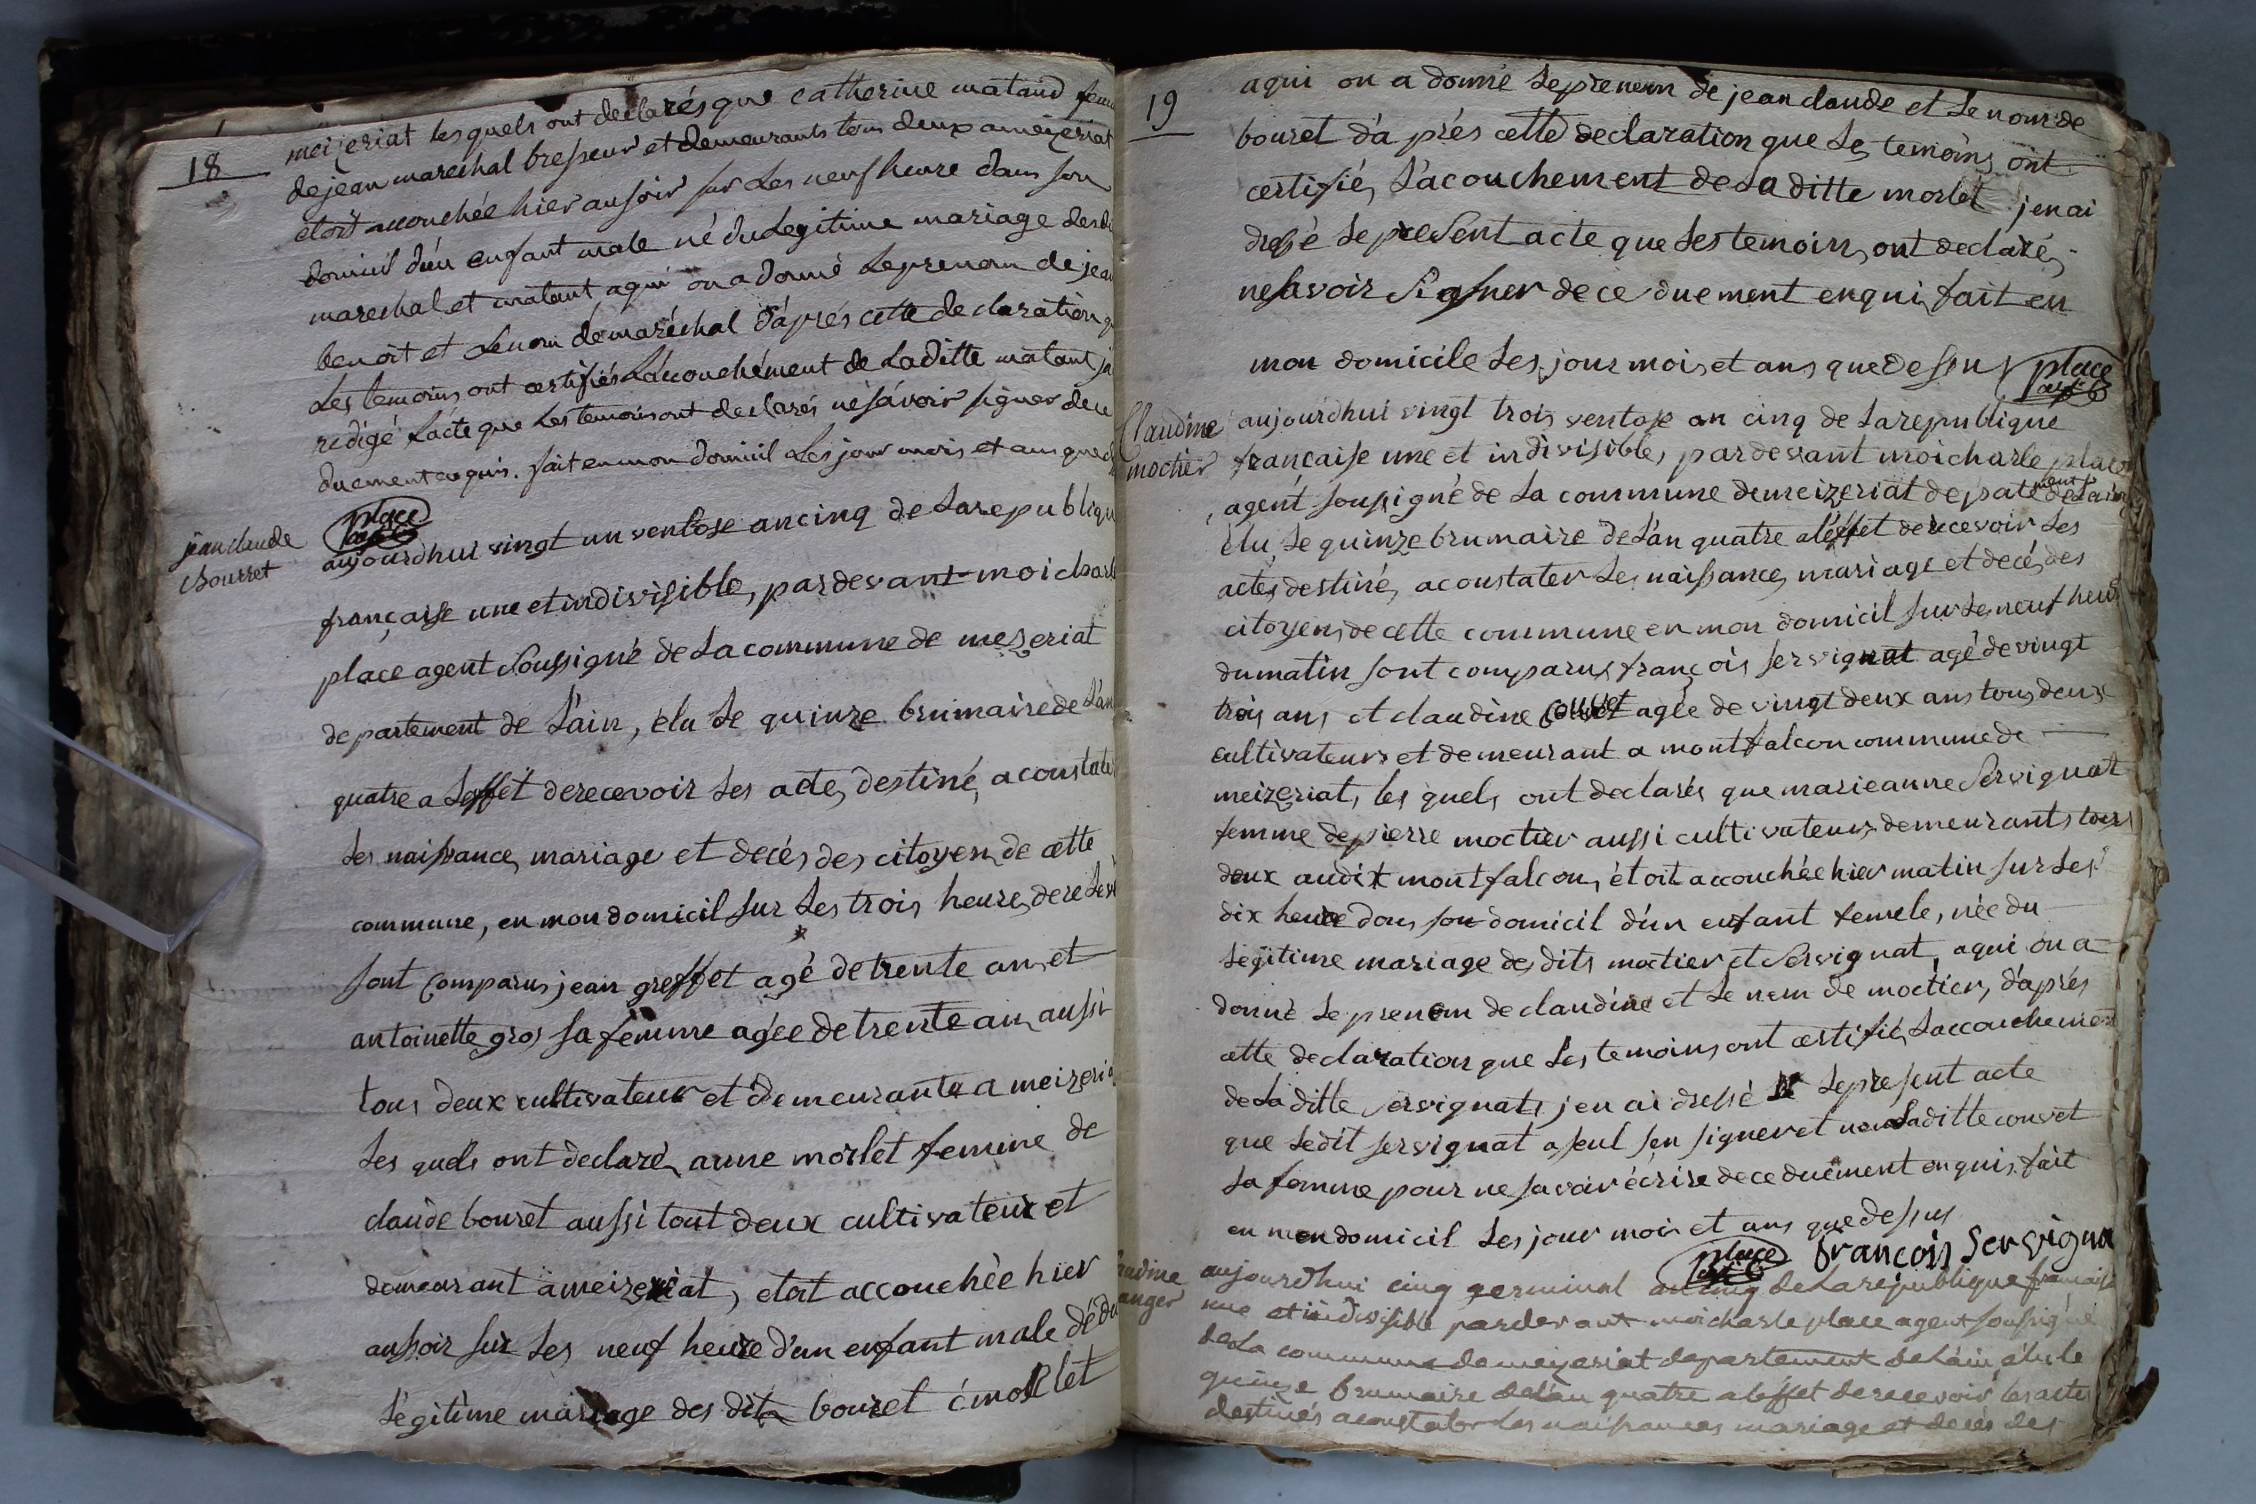 18
meizeriat lesquels ont declarés que catherine mataud
de jean marechal bresseur et demeurants tous deux a meizeriat
etoit accouchée hier au soir sur les neuf heure dans son
domicil d'un enfant male né du legitime mariage desdi
marechal et matant a qui on a donné le prenom de jean
benoit et le nom de maréchal d'aprés cette declaration q
les temoins ont certifiés l'accouchément de la ditte matant j'ai
redigé l'acte que les temoins ont declarés ne sávoir signer de ce
duement enquis. fait en mon domicil les jour mois et ans que d
place
jean claude
bourret
aujourdhui vingt un ventose an cinq de la republiqu
française une et indivisible, pardevant moi charle
place agent soussigné de la commune de mezeriat
departement de l'ain, élu le quinze brumaire de l'an
quatre a leffet de recevoir les actes destinés a constater
les naissances mariage et decés des citoyens de cette
commune, en mon domicil sur les trois heures de relevé
sont comparus jean greffet agé de trente ans et
antoinette gros sa femme agée de trente ans aussi
tous deux cultivateur et demeurants a meizeria
les quels ont declaré anne morlet femme de
claude bouret aussi tout deux cultivateur et
demeurant a meizeriat, etoit accouchée hier
au soir sur les neuf heure d'un enfant male né du
légitime mariage des dits bouret é morlet
19
a qui on a donné le prenom de jean claude et le nom de
bouret d'a prés cette declaration que les temoins ont
certifiés l'acouchement de la ditte morlet j'en ai
dressé le present acte que les temoins ont declarés
ne savoir signer de ce duement enquis fait en
mon domicile les jour mois et ans que dessus place
Claudine
moctier
aujourdhui vingt trois ventose an cinq de la republique
française une et indivisible, pardevant moi charle place
agent soussigné de la commune de meizeriat depatement de l'ain
élu le quinze brumaire de l'an quatre a l'éffet de recevoir les
actes destinés a constater les naissances mariage et decés des
citoyens de cette commune en mon domicil sur les neuf heure
du matin sont comparus françois servignat agé de vingt
trois ans et claudine couvet agée de vingt deux ans tous deux
cultivateurs et demeurant a montfalcon commune de
meizeriat, les quels ont declarés que marieanne Servignat
femme de pierre moctier aussi cultivateurs demeurants tous
deux audit montfalcon, étoit accouchée hier matin sur les
dix heure dans son domicil d'un enfant femele, née du
legitime mariage des dits moctier et Servignat, a qui on a
donné le prenom de claudine et le nom de moctier, d'aprés
cette declaration que les temoins ont certifiés l'accouchement
de la ditte servignat, j'en ai dressé le present acte
que ledit servignat a seul sçu signer et non la ditte couvet
sa femme pour ne savoir écrire de ce duement enquis, fait
en mon domicil les jour mois et ans que dessus
place françois Servigna
audine
anger
aujourdhui cinq germinal an cinq de la republique francaise
une et indivisible pardevant moi charle place agent soussigné
de la commune de meizeriat departement de l'ain élu le
quinze brumaire de l'an quatre a leffet de recevoir les actes
destinés a constater les naissances mariage et decés des